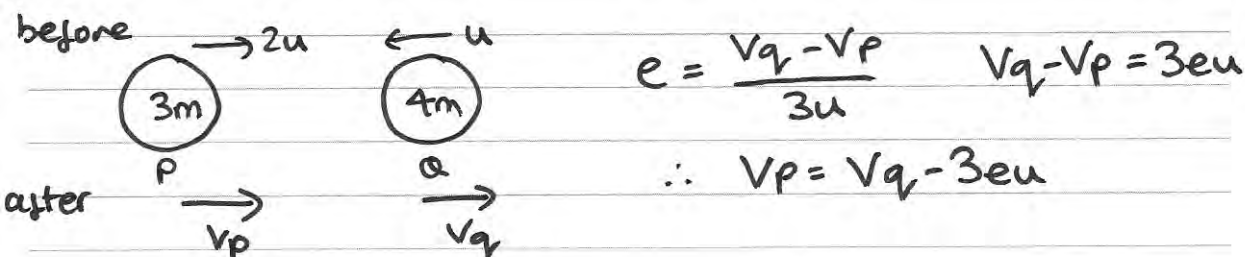 before → 2u ← u
3m 4m
P Q
after → →
Vp Vq
e = (Vq - Vp)/3u Vq - Vp = 3eu
∴ Vp = Vq - 3eu